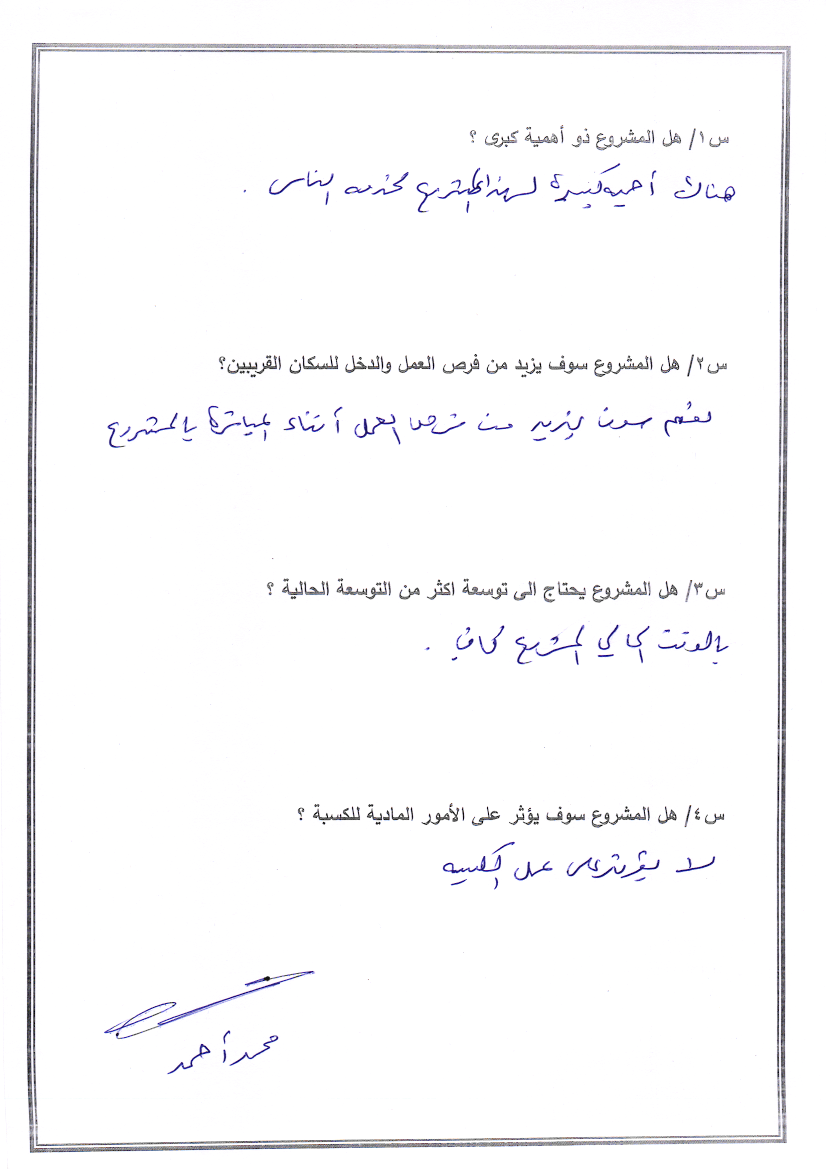 س١/ هل المشروع ذو أهمية كبرى ؟
هناك أهمية كبيرة لهذا المشروع لخدمة الناس .
س٢/ هل المشروع سوف يزيد من فرص العمل والدخل للسكان القريبين؟
نعم سوف يزيد من فرص العمل أثناء المباشرة بالمشروع
س٣/ هل المشروع يحتاج الى توسعة اكثر من التوسعة الحالية ؟
بالوقت الحالي المشروع كافي .
س٤/ هل المشروع سوف يؤثر على الأمور المادية للكسبة ؟
لا يؤثر على عمل الكسبه
محمد أحمد